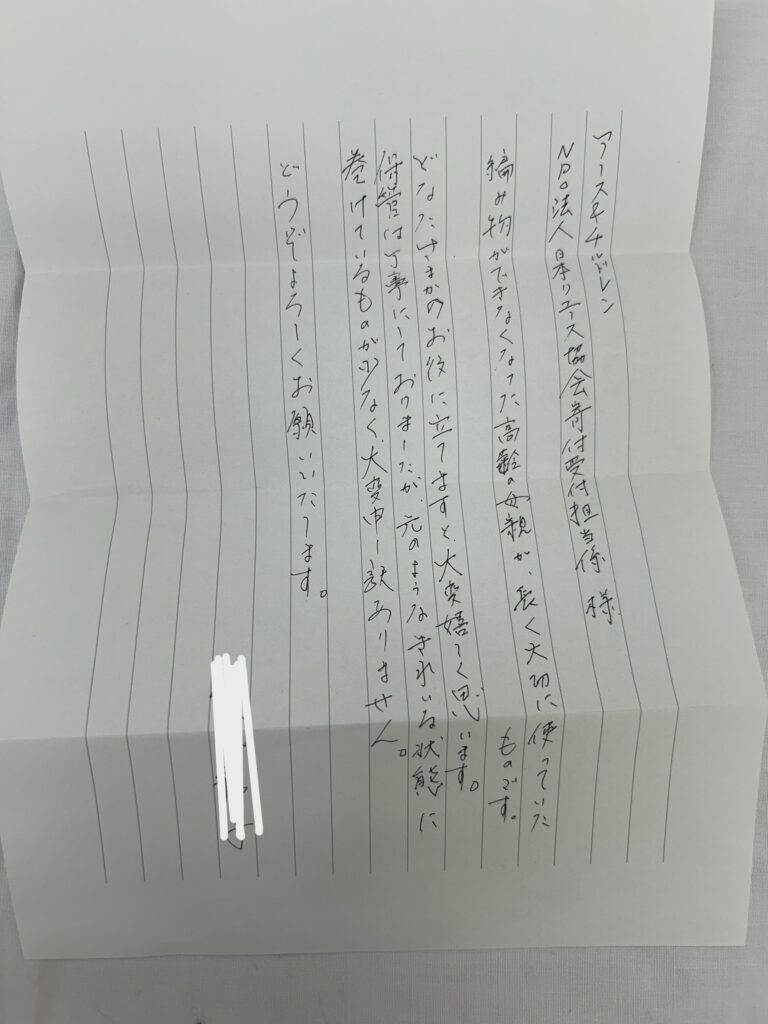 アース&チルドレン
NPO法人 日本リユース協会寄付受付担当係 様
編み物ができなくなった高齢の母親が、長く大切に使っていた
ものです。
どなたさまかのお役に立てますと、大変嬉しく思います。
保管は丁寧にしておりましたが、元のようなきれいな状態に
巻けているものが少なく、大変申し訳ありません。
どうぞよろしくお願いいたします。